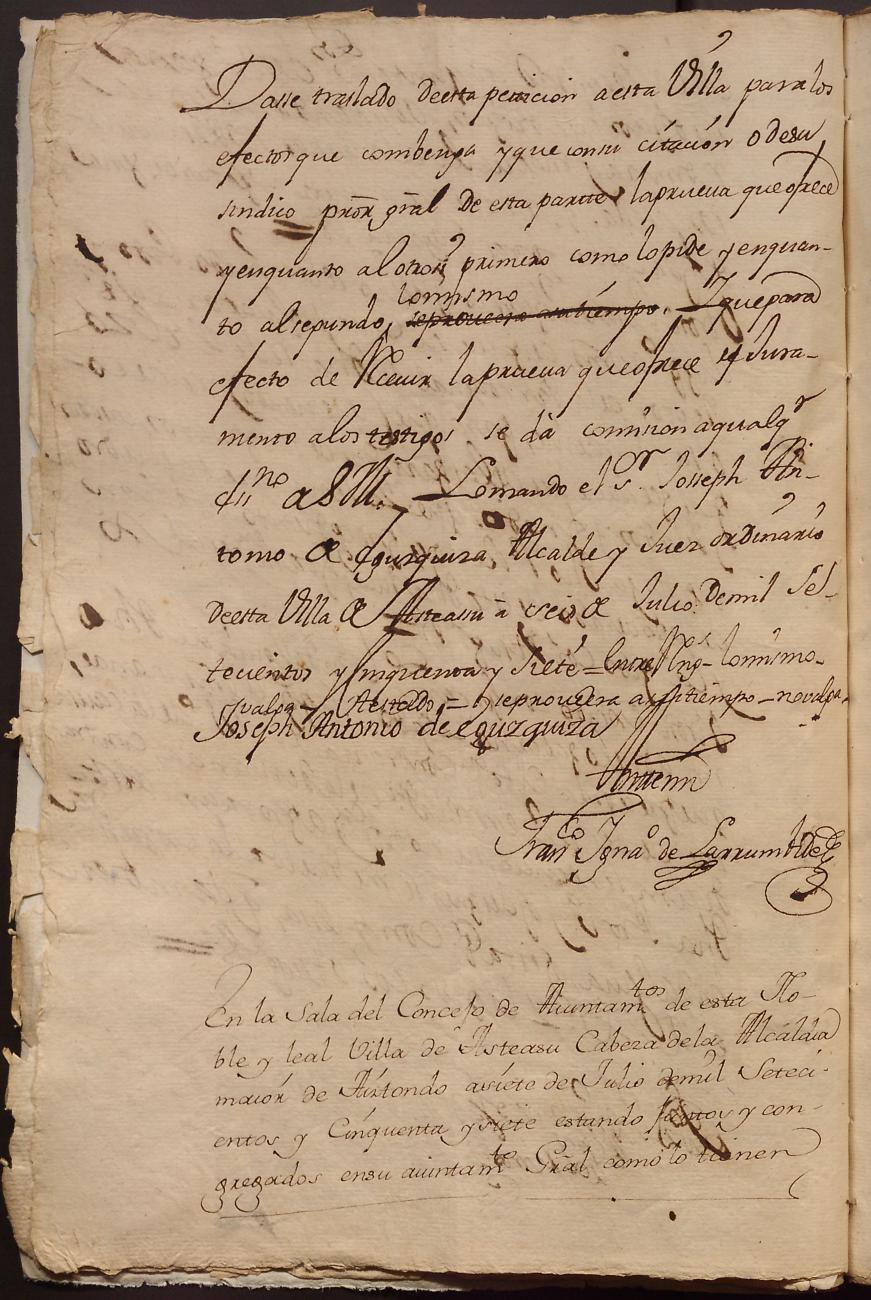 Dasse traslado deesta peticion aesta Villa para los
efectos que combenga y que con su citación o desu
sindico prõr grãl De esta parte laprueva que ofrece
yenquanto al otrosi primero como lo pide y enquan-
lomismo
to alsegundo, seproveera asutiempo. Y que para
efecto de Recevir laprueva que ofrece y Jura-
mento alos testigos se da comision a qualqr
essno de S.M. Lomando el Sor Joseph An-
tonio de Eguzquiza, Alcalde y Juez ordinario
deesta Villa de Asteasu â seis de Julio Demil Set-
tecientos y cinquenta y siete = Entre Rengs lomismo-
valga - Testado = seproveera asutiempo - no valga.
Joseph Antonio de eguzquiza
Antemi
Franco Ignao de Larrumbide
En la Sala del Concejo de Aiuntamtos de esta No-
ble y leal Villa de Asteasu Cabeza dela Alcaldia
maior de Aiztondo asiete de Julio demil Seteci-
entos y Cinquenta y siete estando juntos y con-
gregados ensu aiuntamto Grãl como lo tienen